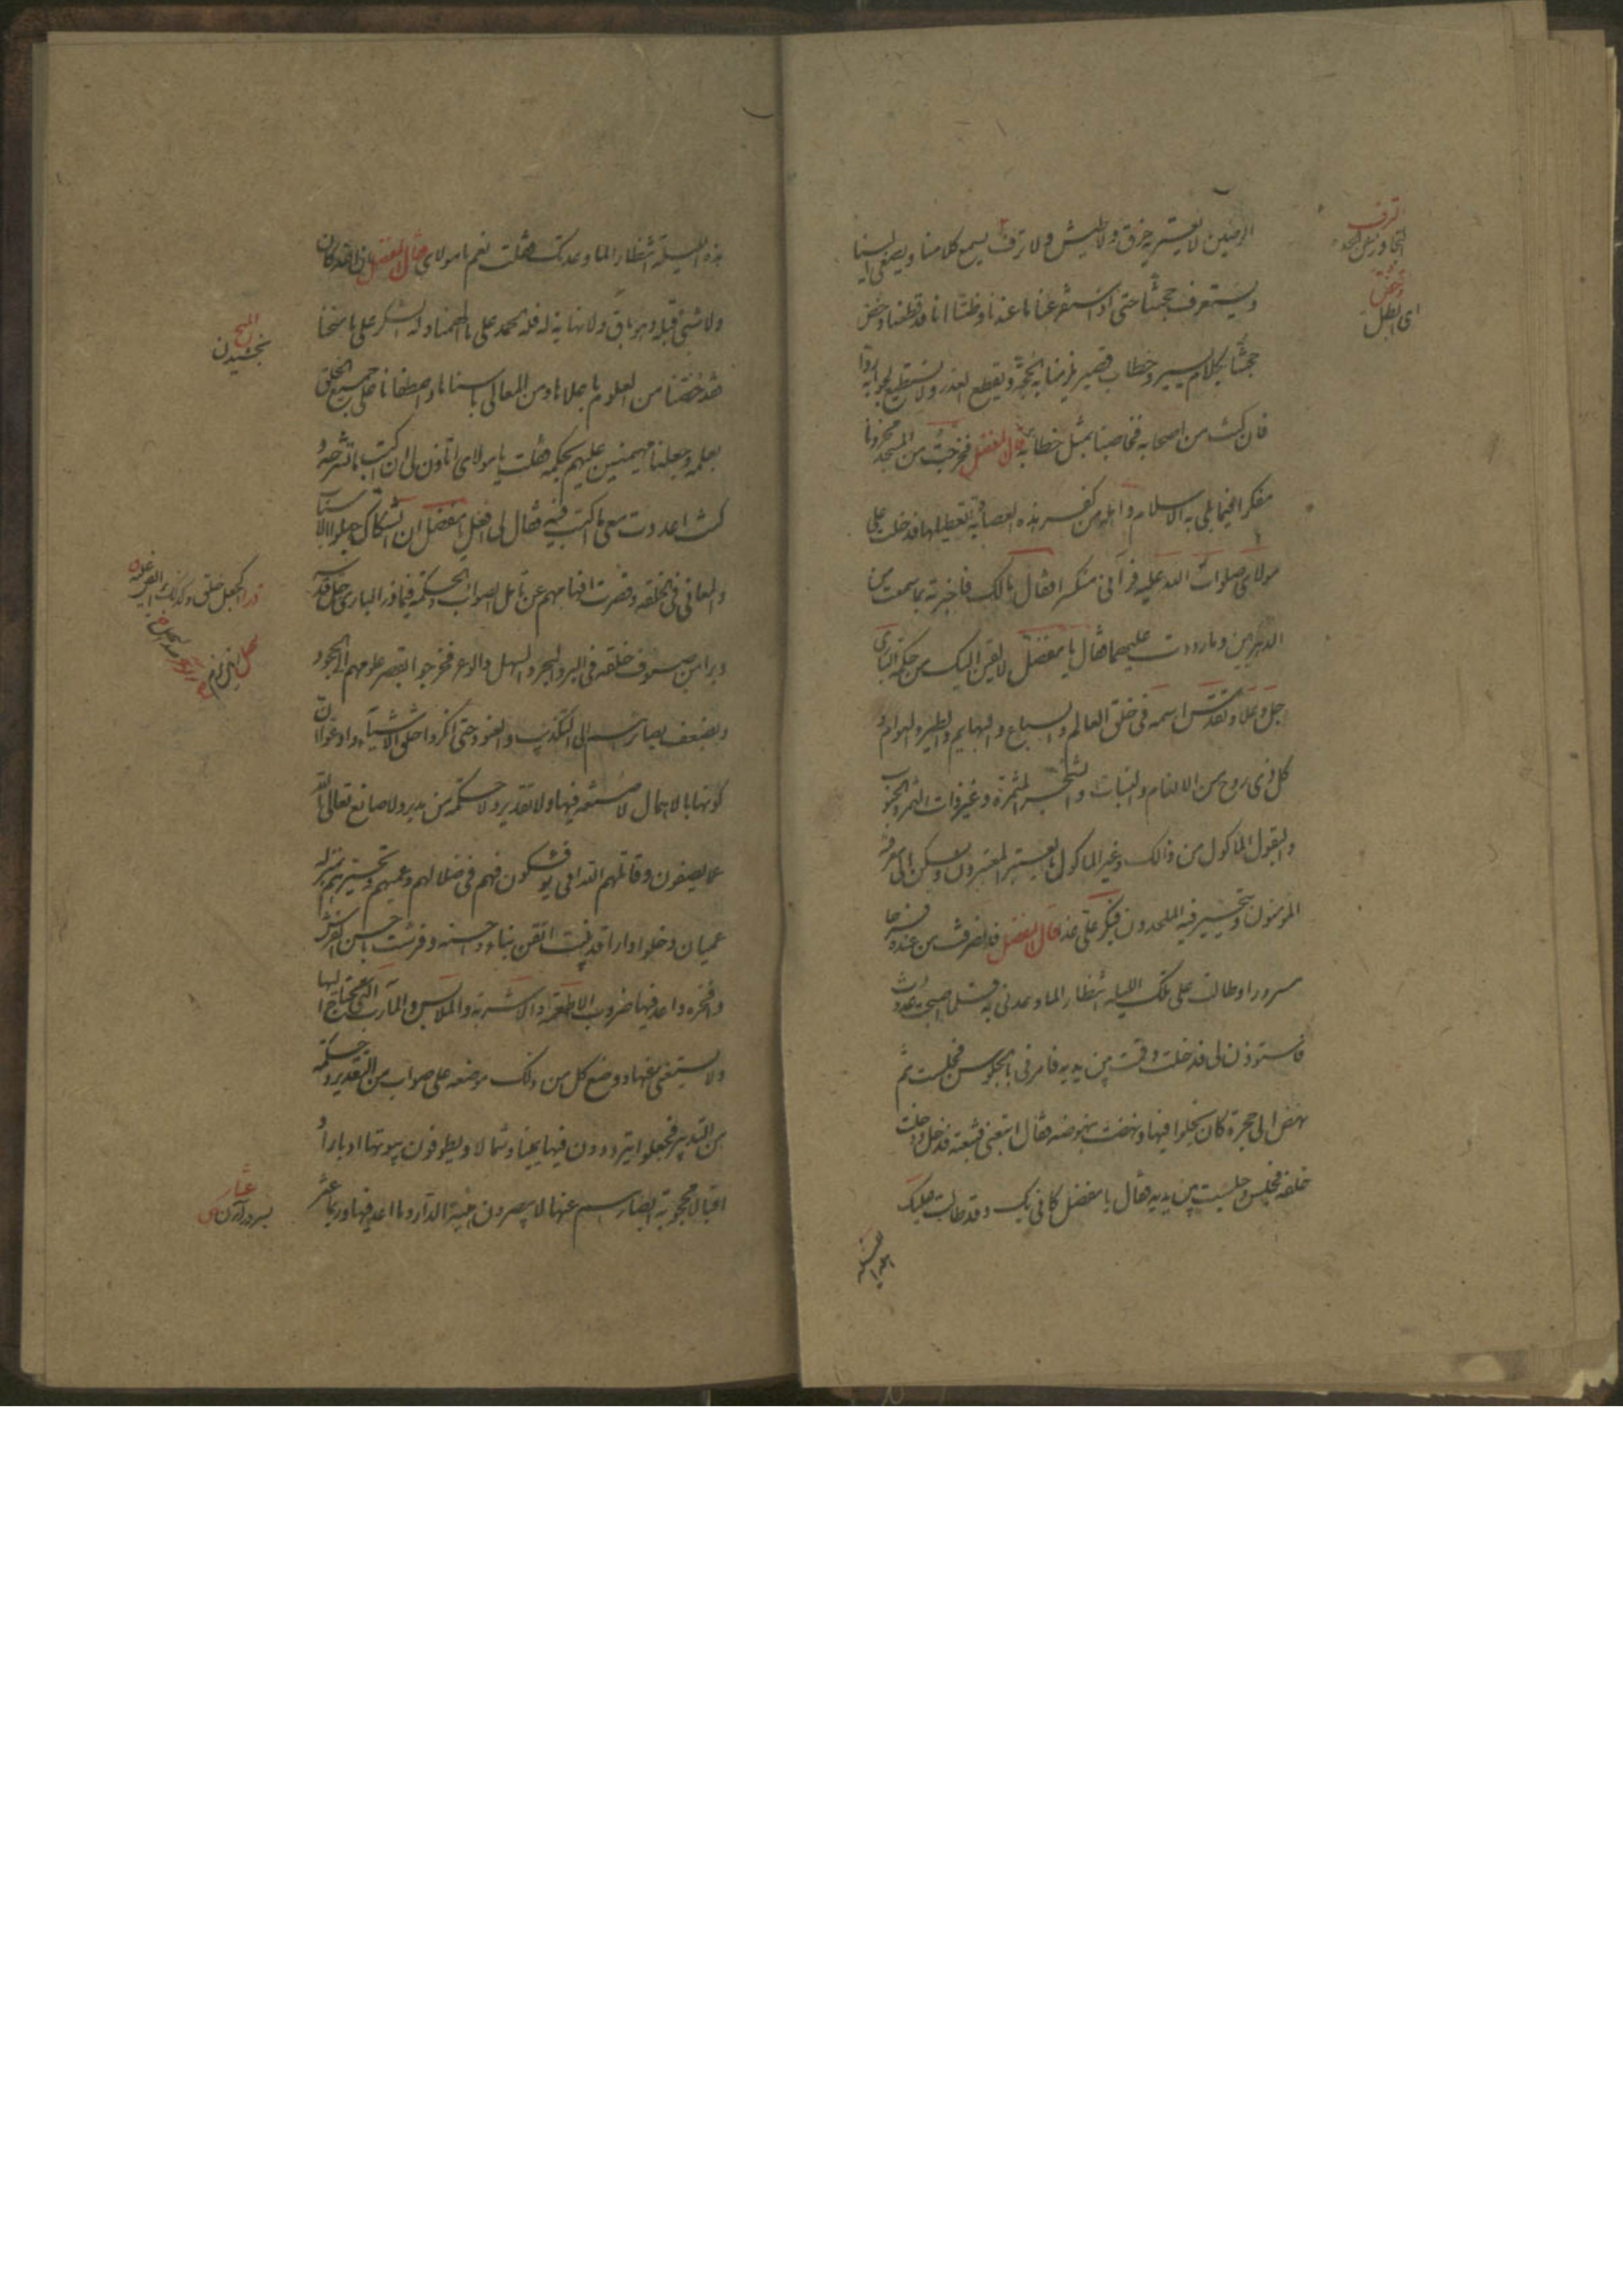 الرصين لا يعتريه خرق ولا طيش ولا ترف يسمع كلامنا ويصغى الينا
ويستعرف حجتنا حتى اذا استفرغنا ما عندنا وظننا انا قد قطعناه دحض
حجتنا بكلام يسير وخطاب قصير يلزمنا به الحجة ويقطع العذر ولا نستطيع لجوابه ردا
فان كنت من اصحابه فخاطبنا بمثل خطابه قال المفضل فخرجت من المسجد محزونا
مفكرا فيما بلى به الاسلام واهله من كفر هذه العصابة وتعطيلها فدخلت على
مولاى صلوات الله عليه فرآنى منكسرا فقال مالك فاخبرته بما سمعت من
الدهريين وما رددت عليهما فقال يا مفضل لالقين اليك من حكمة البارى
جل وعلا وتقدس اسمه فى خلق العالم والسباع والبهايم والطير والهوام و
كل ذى روح من الانعام والنبات والشجر المثمرة وغير ذات الثمر والحبوب
والبقول الماكول من ذالك وغير الماكول ما يعتبر به المعتبرون ويسكن الى معرفته
المؤمنون ويتحير فيه الملحدون فبكر على غدا قال المفضل فانصرفت من عنده فرحا
مسرورا وطالت على تلك الليلة انتظارا لما وعدنى به فلما اصبحت غدوت
فاستوذن لى فدخلت وقمت بين يديه فامرنى بالجلوس فجلست ثم
نهض الى حجرة كان يخلوا فيها ونهضت بنهوضه فقال اتبعنى فتبعته فدخل ودخلت
خلفه فجلس وجلست بين يديه فقال يا مفضل كانى بك وقد طالت عليك
الترف
التجاوز عن الحد
دحض
اى ابطل
هذه الليلة انتظارا لما وعدتك فقلت نعم يا مولاى فقال يا مفضل ان الله كان
ولا شئ قبله وهو باق ولا نهاية له فله الحمد على ما الهمنا وله الشكر على ما منحنا
فقد خصنا من العلوم باعلاها ومن المعالى باسناها واصطفانا على جميع الخلق
بعلمه وجعلنا مهيمنين عليهم بحكمه فقلت يا مولاى اتاذن لى ان اكتب ما تشرحه و
كنت اعددت معى ما اكتب فيه فقال لى افعل يا مفضل ان الشكاك جهلوا الاسباب
والمعانى فى الخلقة وقصرت افهامهم عن تامل الصواب والحكمة فيما ذرأ البارى جل قدسه
وبرأ من صنوف خلقه فى البر والبحر والسهل والوعر فخرجوا بقصر علومهم الى الجحود
وبضعف بصائرهم الى التكذيب والعنود حتى انكروا خلق الاشياء وادعوا ان
كونها بالاهمال لا صنعة فيها ولا تقدير ولا حكمة من مدبر ولا صانع تعالى الله
عما يصفون وقاتلهم الله انى يؤفكون فهم فى ضلالهم وعميهم وتحيرهم بمنزلة
عميان دخلوا دارا قد بنيت اتقن بناء واحسنه وفرشت باحسن الفرش
وافخره واعد فيها ضروب الاطعمة والاشربة والملابس والمآرب التى يحتاج اليها
ولا يستغنى عنها ووضع كل من ذلك موضعه على صواب من التقدير وحكمة
من التدبير فجعلوا يترددون فيها يمينا وشمالا ويطوفون بيوتها ادبارا و
اقبالا محجوبة ابصارهم عنها لا يبصرون هيئة الدار وما اعد فيها وربما عثر
المنح
بخشيدن